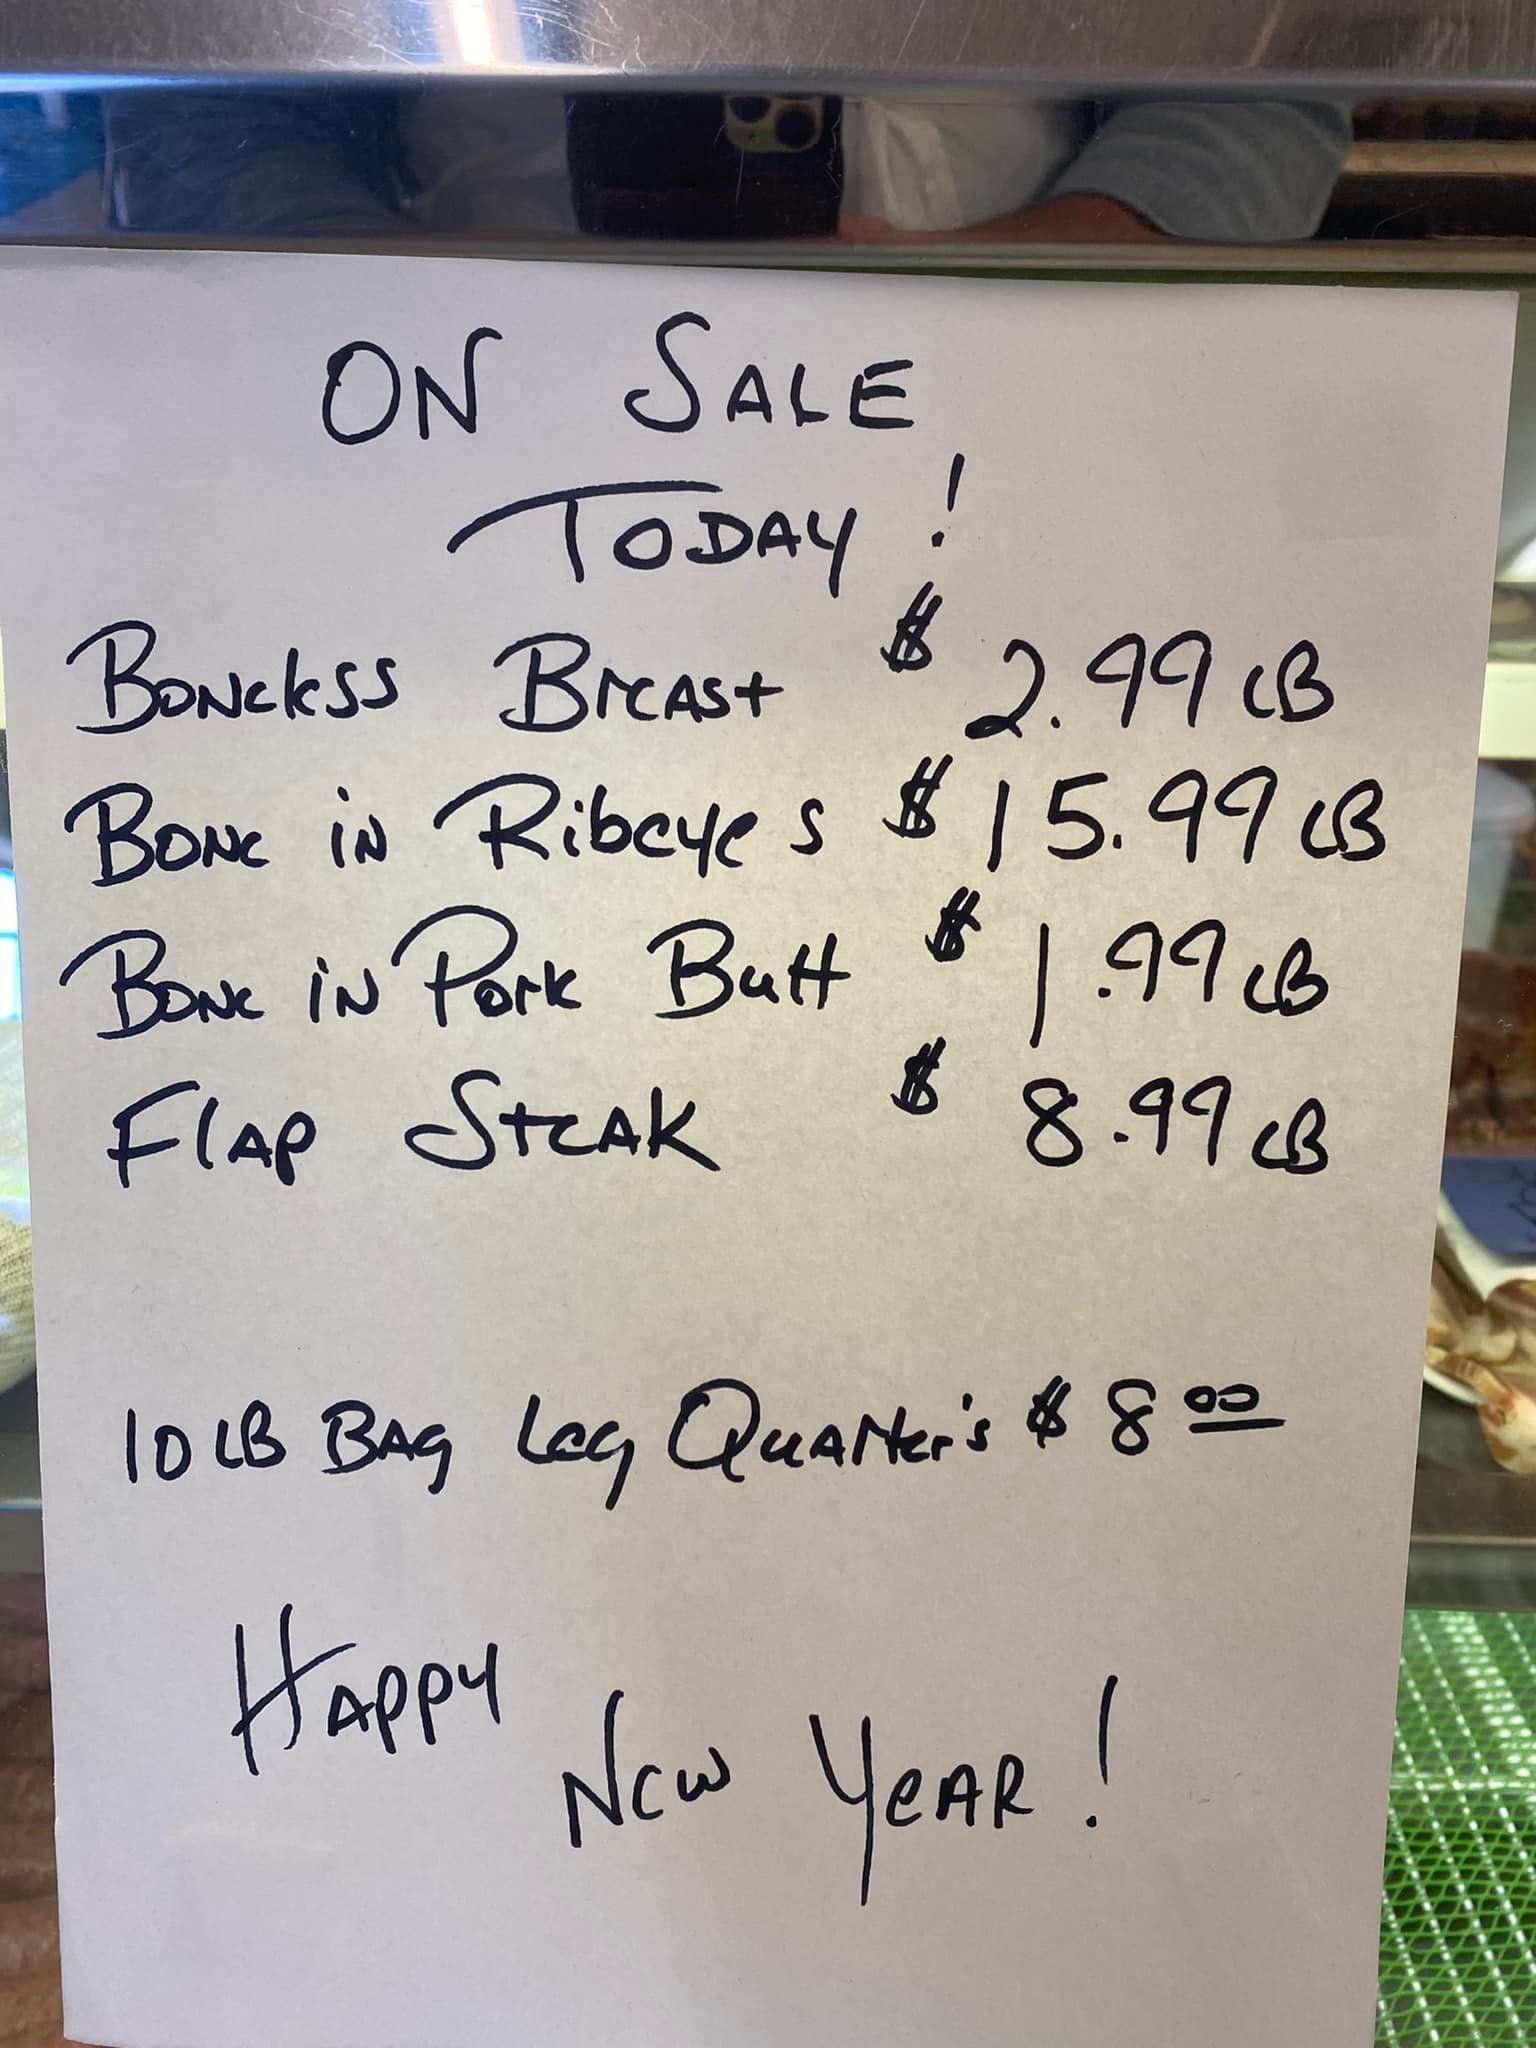 ON SALE
TODAY!
Boneless Breast $2.99 LB
Bone in Ribeyes $15.99 LB
Bone in Pork Butt $1.99 LB
Flap Steak $8.99 LB
10 LB Bag Leg Quarter's $8 00
Happy
New Year!